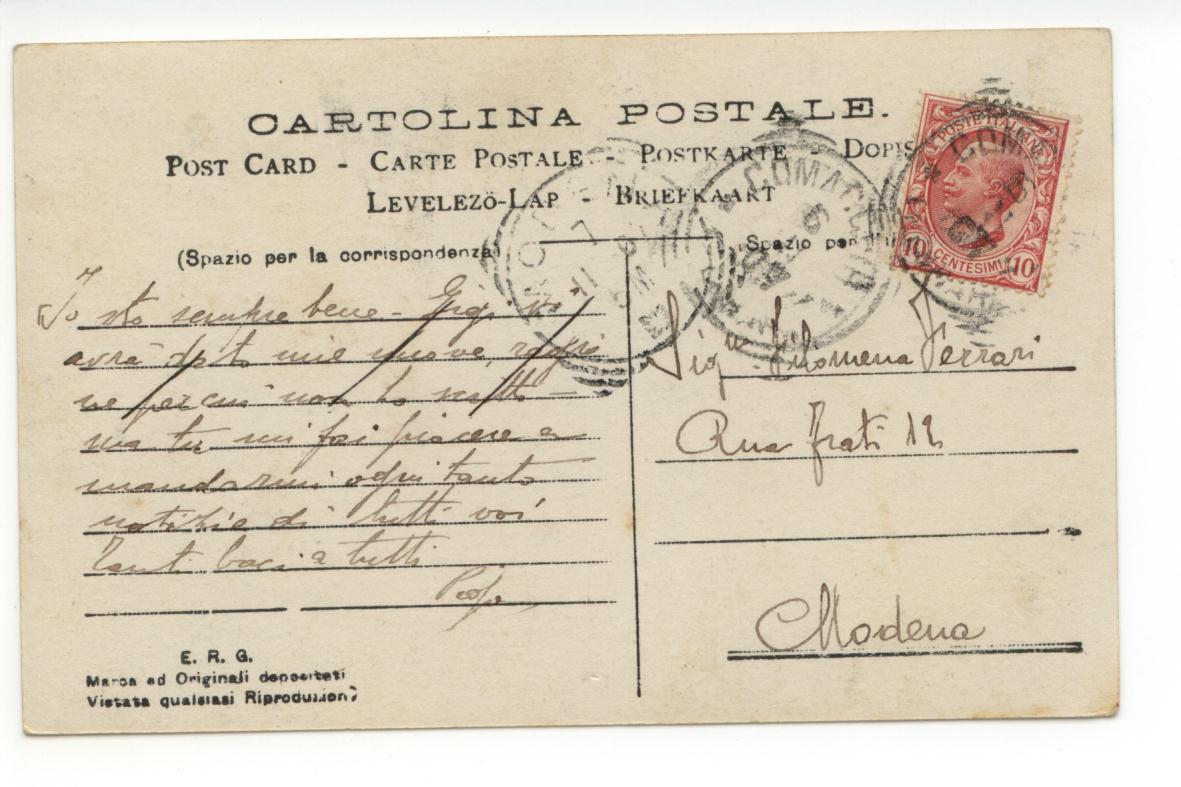 CARTOLINA POSTALE.
POST CARD - CARTE POSTALE - POSTKARTE - DOPIS
LEVELEZŐ-LAP - BRIEFKAART
(Spazio per la corrispondenza)
(Spazio per l'in
POSTE ITALIANE
10 CENTESIMI 10
COMACCHIO
Io sto sempre bene - Gigi vi
avrà dato mie nuove
per cui non ho scritto -
ma tu mi fai piacere a
mandarmi ogni tanto
notizie di tutti voi
Tanti baci a tutti
Sig.na Filomena Ferrari
Rua Frati 12
Modena
E. R. G.
Marca ed Originali depositati
Vietata qualsiasi Riproduzione